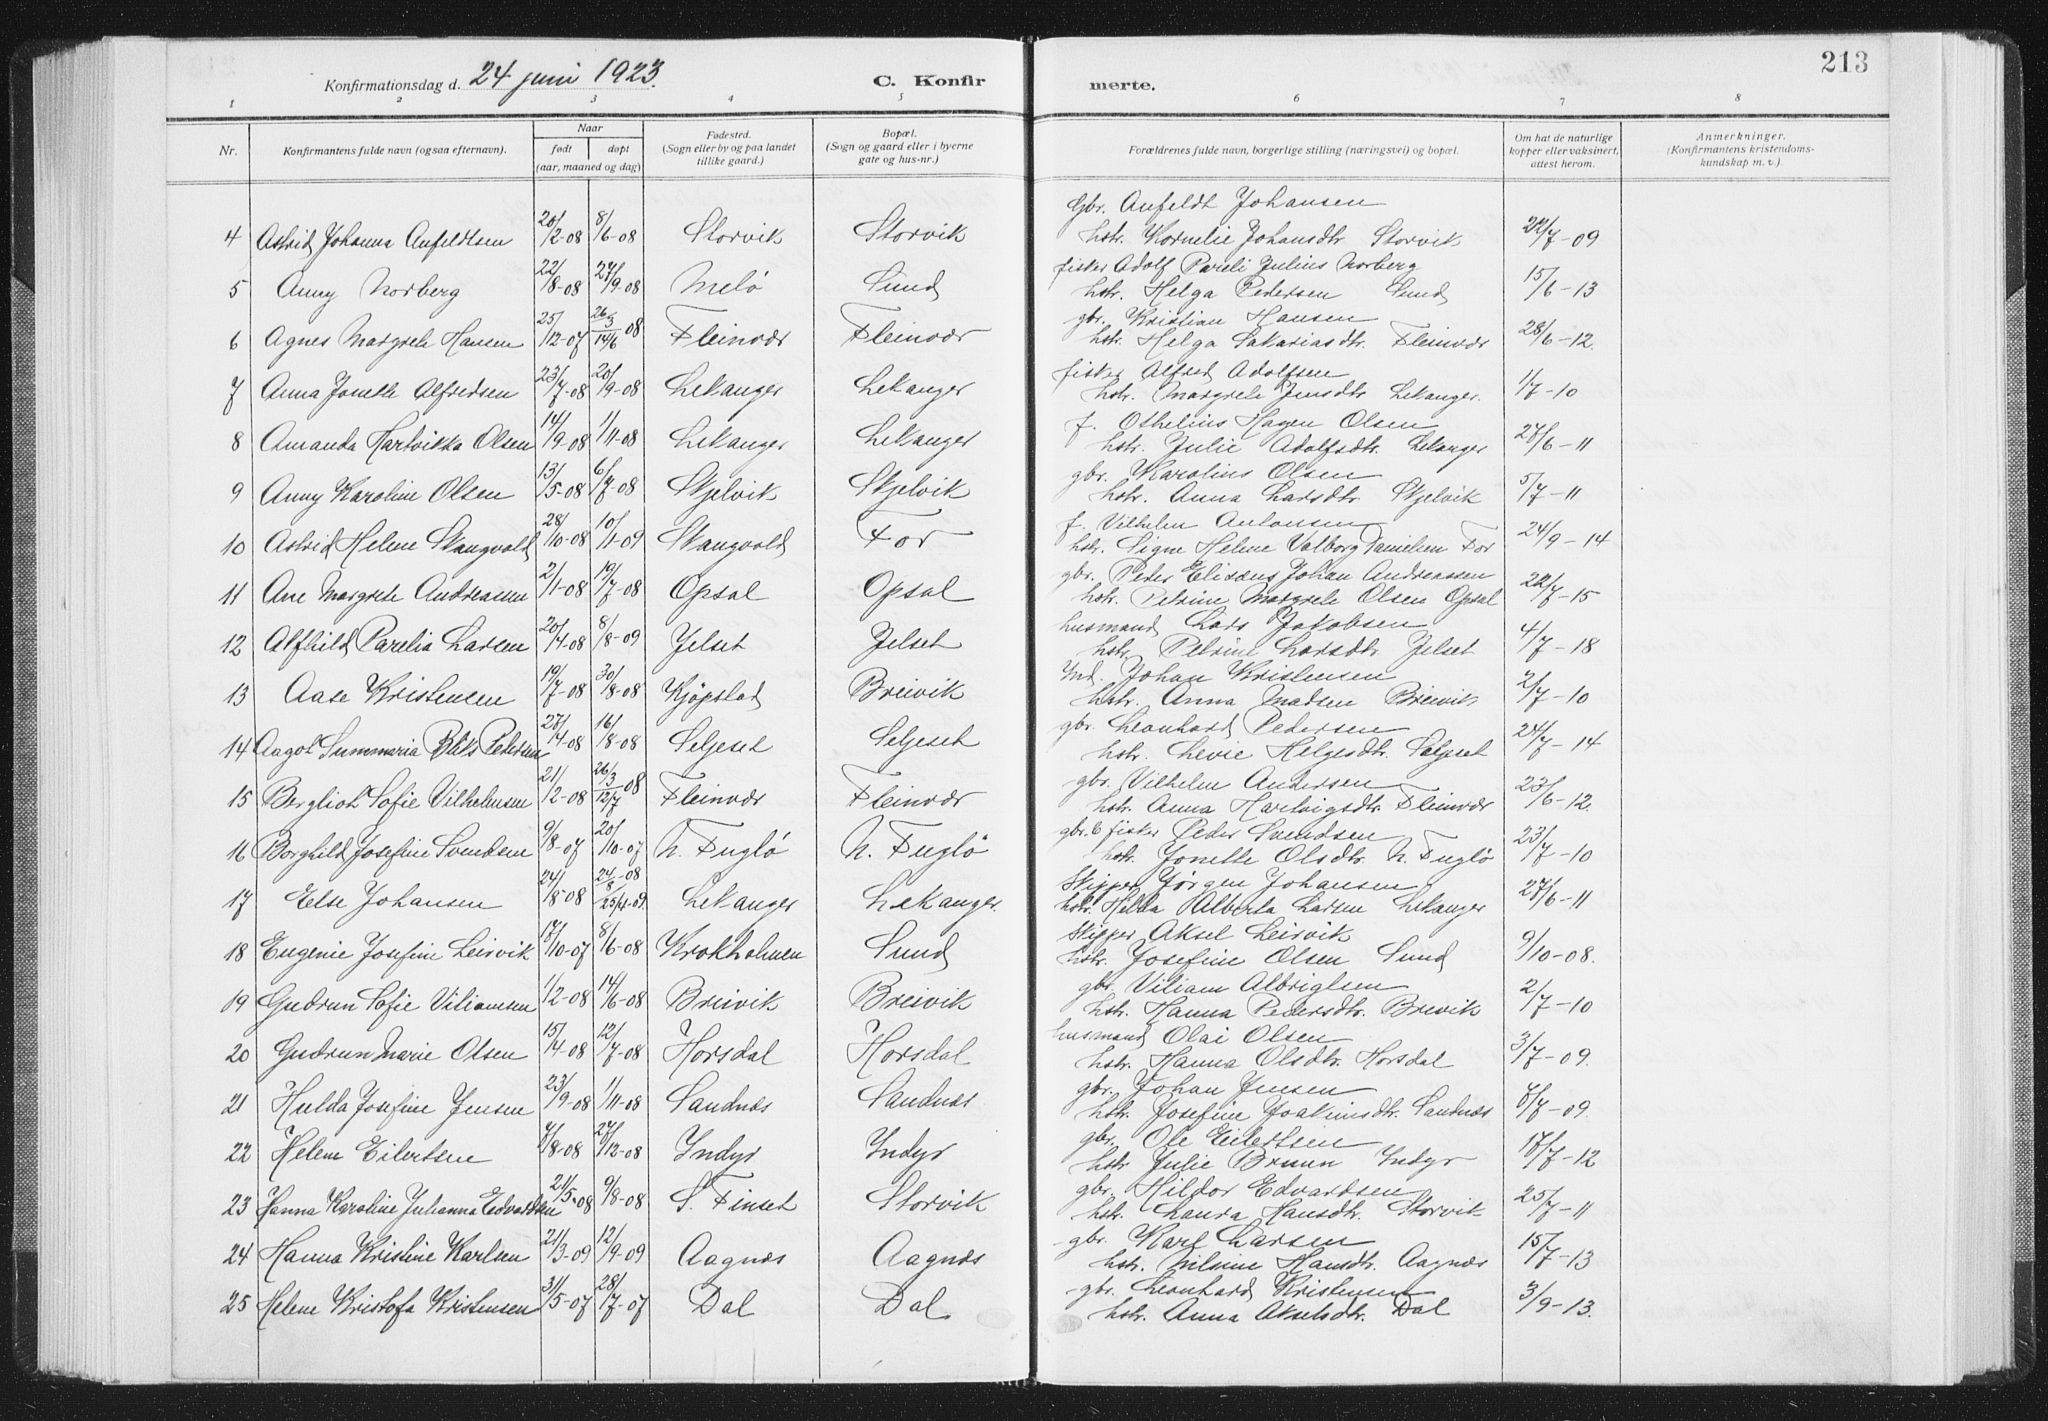 213
Konfirmationsdag d. 24 juni 1923.
C. Konfirmerte.
1 2 3 4 5 6 7 8
Nr. Konfirmantens fulde navn (ogsaa efternavn). Naar født døpt (aar, maaned og dag) Fødested. (Sogn eller by og paa landet tillike gaard.) Bopæl. (Sogn og gaard eller i byerne gate og hus-nr.) Forældrenes fulde navn, borgerlige stilling (næringsvei) og bopæl. Om hat de naturlige kopper eller vaksinert, attest herom. Anmerkninger. (Konfirmantens kristendomskundskap m. v.)
gbr. Anfeldt Johansen
4 Astrid Johanna Anfeldtsen 20/2-08 8/6-08 Storvik Storvik hstr. Kornelie Johansdtr. Storvik 22/7-09
fisker Adolf Pareli Julius Norberg
5 Anny Norberg 22/8-08 27/9-08 Melö Sund hstr. Helga Pedersen Sund 15/6-13
gbr. Kristian Hansen
6 Agnes Margrete Hansen 25/12-07 26/3 14/6 08 Fleinvær Fleinvær hstr. Helga Sakariasdtr. Fleinvær 28/6-12.
fisker Alfred Adolfsen
7 Anna Jonette Alfredsen 23/7-08 20/9-08 Lekanger Lekanger hstr. Margrete Jensdtr. Lekanger. 1/7-10
f. Othelius Hagen Olsen
8 Amanda Hartvikka Olsen 14/9-08 1/11-08 Lekanger Lekanger hstr. Julie Adolfsdtr. Lekanger 27/6-11
gbr. Karolius Olsen
9 Anny Karoline Olsen 13/5-08 6/7-08 Skjelvik Skjelvik hstr. Anna Larsdtr. Skjelvik 5/7-11
f. Vilhelm Antonsen
10 Astrid Helene Skangvold 28/10-08 10/1-09 Skangvold For hstr. Signe Helene Valborg Danielsen For 24/9-14
gbr. Peder Elisæus Johan Andreassen
11 Ane Margrete Andreassen 2/1-08 19/7-08 Opsal Opsal hstr. Petrine Margrete Olsen Opsal 22/7-15
husmand Lars Jakobsen
12 Alfhild Parelia Larsen 20/4-08 8/8-09 Jelset Jelset hstr. Petrine Larsdtr. Jelset 4/7-18
Ind. Johan Kristensen
13 Aase Kristensen 19/7-08 30/8-08 Kjöpstad Breivik hstr. Anna Madsen Breivik 2/7-10
gbr. Leonhard Pedersen
14 Aagot Summaria Pedersen 27/4-08 16/8-08 Seljeset Seljeset hstr. Levie Helgesdtr. Seljeset 24/7-14
gbr. Vilhelm Andersen
15 Bergliot Sofie Vilhelmsen 21/2-08 26/3 12/7 08 Fleinvær Fleinvær hstr. Anna Hartvigsdtr. Fleinvær 23/6-12.
gbr. & fisker Peder Svendsen
16 Borghild Josefine Svendsen 9/8-07 20/10-07 N. Fuglö N. Fuglö hstr. Jonette Olsdtr. N. Fuglö 23/7-10
Skipper Jörgen Johansen
17 Else Johansen 24/5-08 24/8-08 25/4-09 Lekanger Lekanger. hstr. Hilda Alberta Larsen Lekanger 27/6-11
Skipper Aksel Leirvik
18 Eugenie Josefine Leirvik 17/10-07 8/6-08 Krokholmen Sund hstr. Josefine Olsen Sund 9/10-08.
gbr. Viliam Albrigtsen
19 Gudrun Sofie Viliamsen 1/2-08 14/6-08 Breivik Breivik hstr. Hanna Pedersdtr. Brevik 2/7-10
husmand Olai Olsen
20 Gudrun Marie Olsen 15/4-08 12/7-08 Horsdal Horsdal hstr. Hanna Olsdtr. Horsdal 3/7-09.
gbr. Johan Jensen
21 Hulda Josefine Jensen 23/9-08 1/11-08 Sandnæs Sandnæs hstr. Josefine Joakimsdtr. Sandnæs 6/7-09.
gbr. Ole Eilertsen
22 Helene Eilertsen 4/8-08 27/12-08 Indyr Indyr hstr. Julie Bruun Indyr 17/7-12
gbr. Hildor Edvardsen
23 Hanna Karoline Julianna Edvardsen 21/5-08 9/8-08 S. Finset Storvik hstr. Laura Hansdtr. Storvik 25/7-11
gbr. Karl Larsen
24 Hanna Kristine Karlsen 21/3-09 12/9-09 Aagnæs Aagnæs hstr. Nilsine Hansdtr. Aagnæs 15/7-13
gbr. Leonhard Kristensen
25 Helene Kristofa Kristensen 31/5-07 28/7-07 Dal Dal hstr. Anna Akselsdtr. Dal 3/9-13.